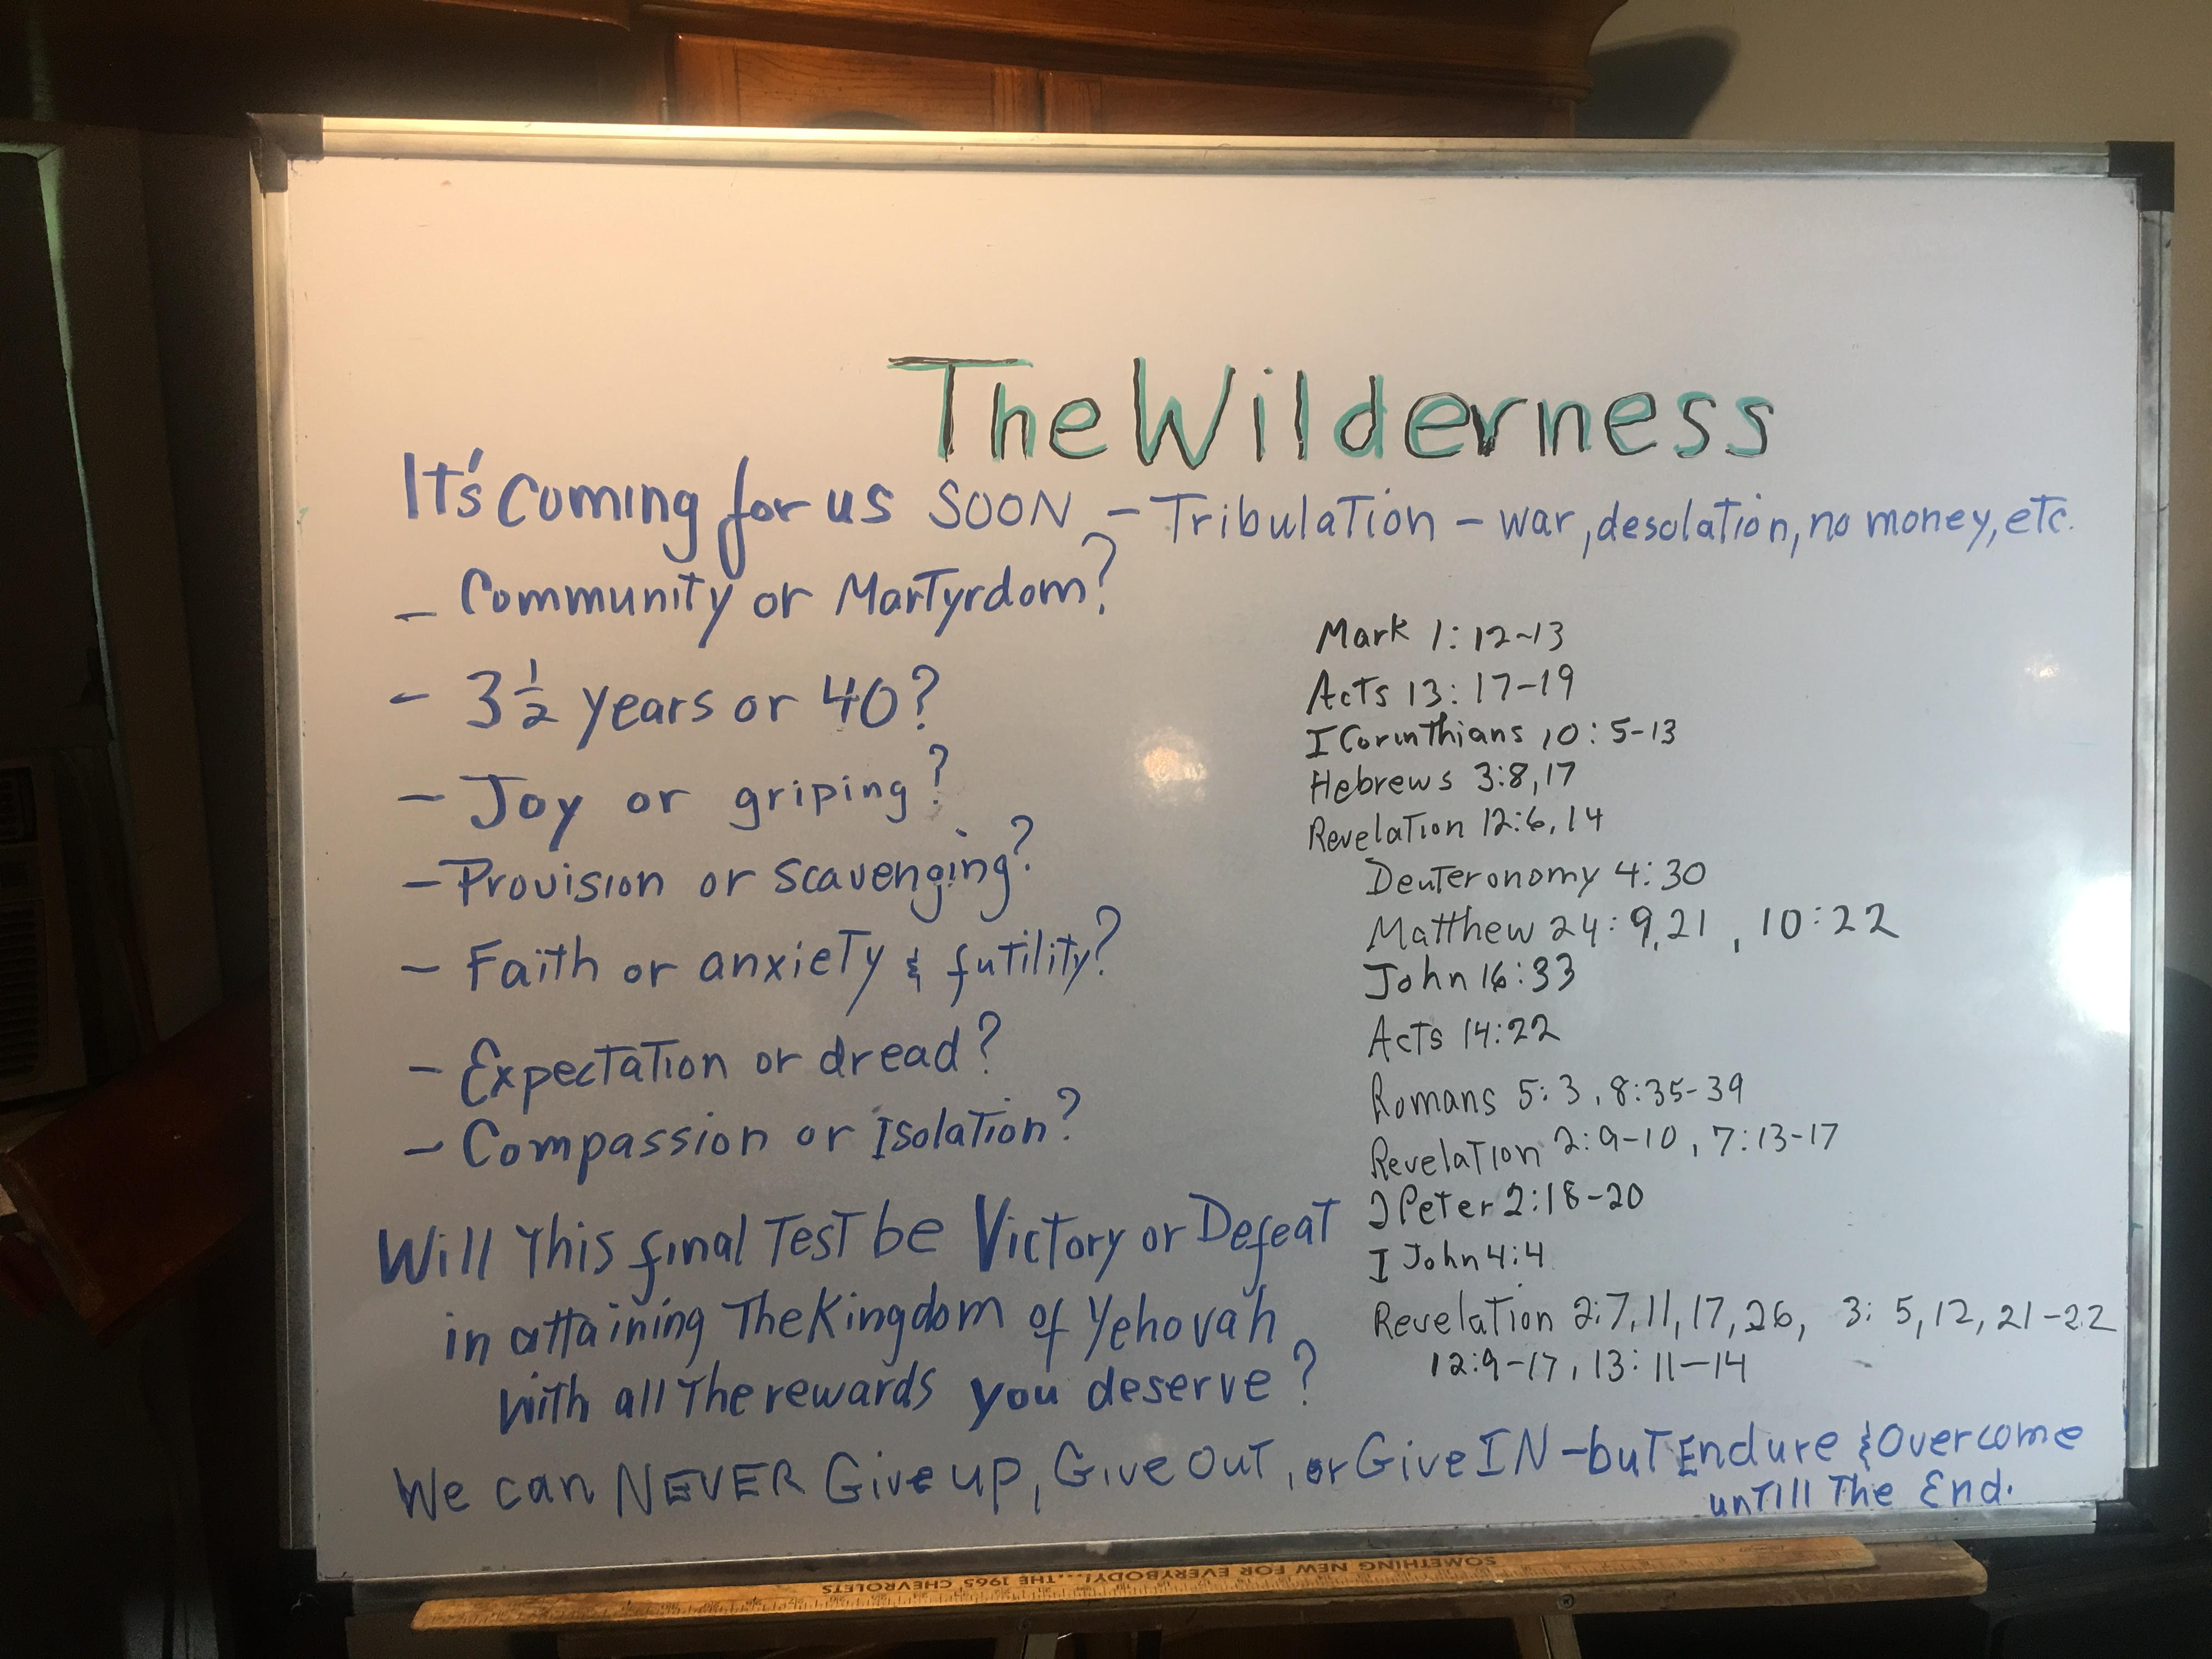 The Wilderness
It's Coming for us SOON - Tribulation - war, desolation, no money, etc.
- Community or Martyrdom?
- 3 1/2 years or 40?
- Joy or griping?
- Provision or scavenging?
- Faith or anxiety & futility?
- Expectation or dread?
- Compassion or Isolation?
Will This final Test be Victory or Defeat
in attaining The Kingdom of Yehovah
with all The rewards you deserve?
Mark 1:12-13
Acts 13:17-19
I Corinthians 10:5-13
Hebrews 3:8,17
Revelation 12:6,14
Deuteronomy 4:30
Matthew 24:9,21, 10:22
John 16:33
Acts 14:22
Romans 5:3, 8:35-39
Revelation 2:9-10, 7:13-17
I Peter 2:18-20
I John 4:4
Revelation 2:7,11,17,26, 3:5,12,21-22
12:9-17, 13:11-14
We can NEVER Give up, Give Out, or Give IN - but Endure & Overcome
untill The End.
SOMETHING NEW FOR EVERYBODY!...THE 1965 CHEVROLETS